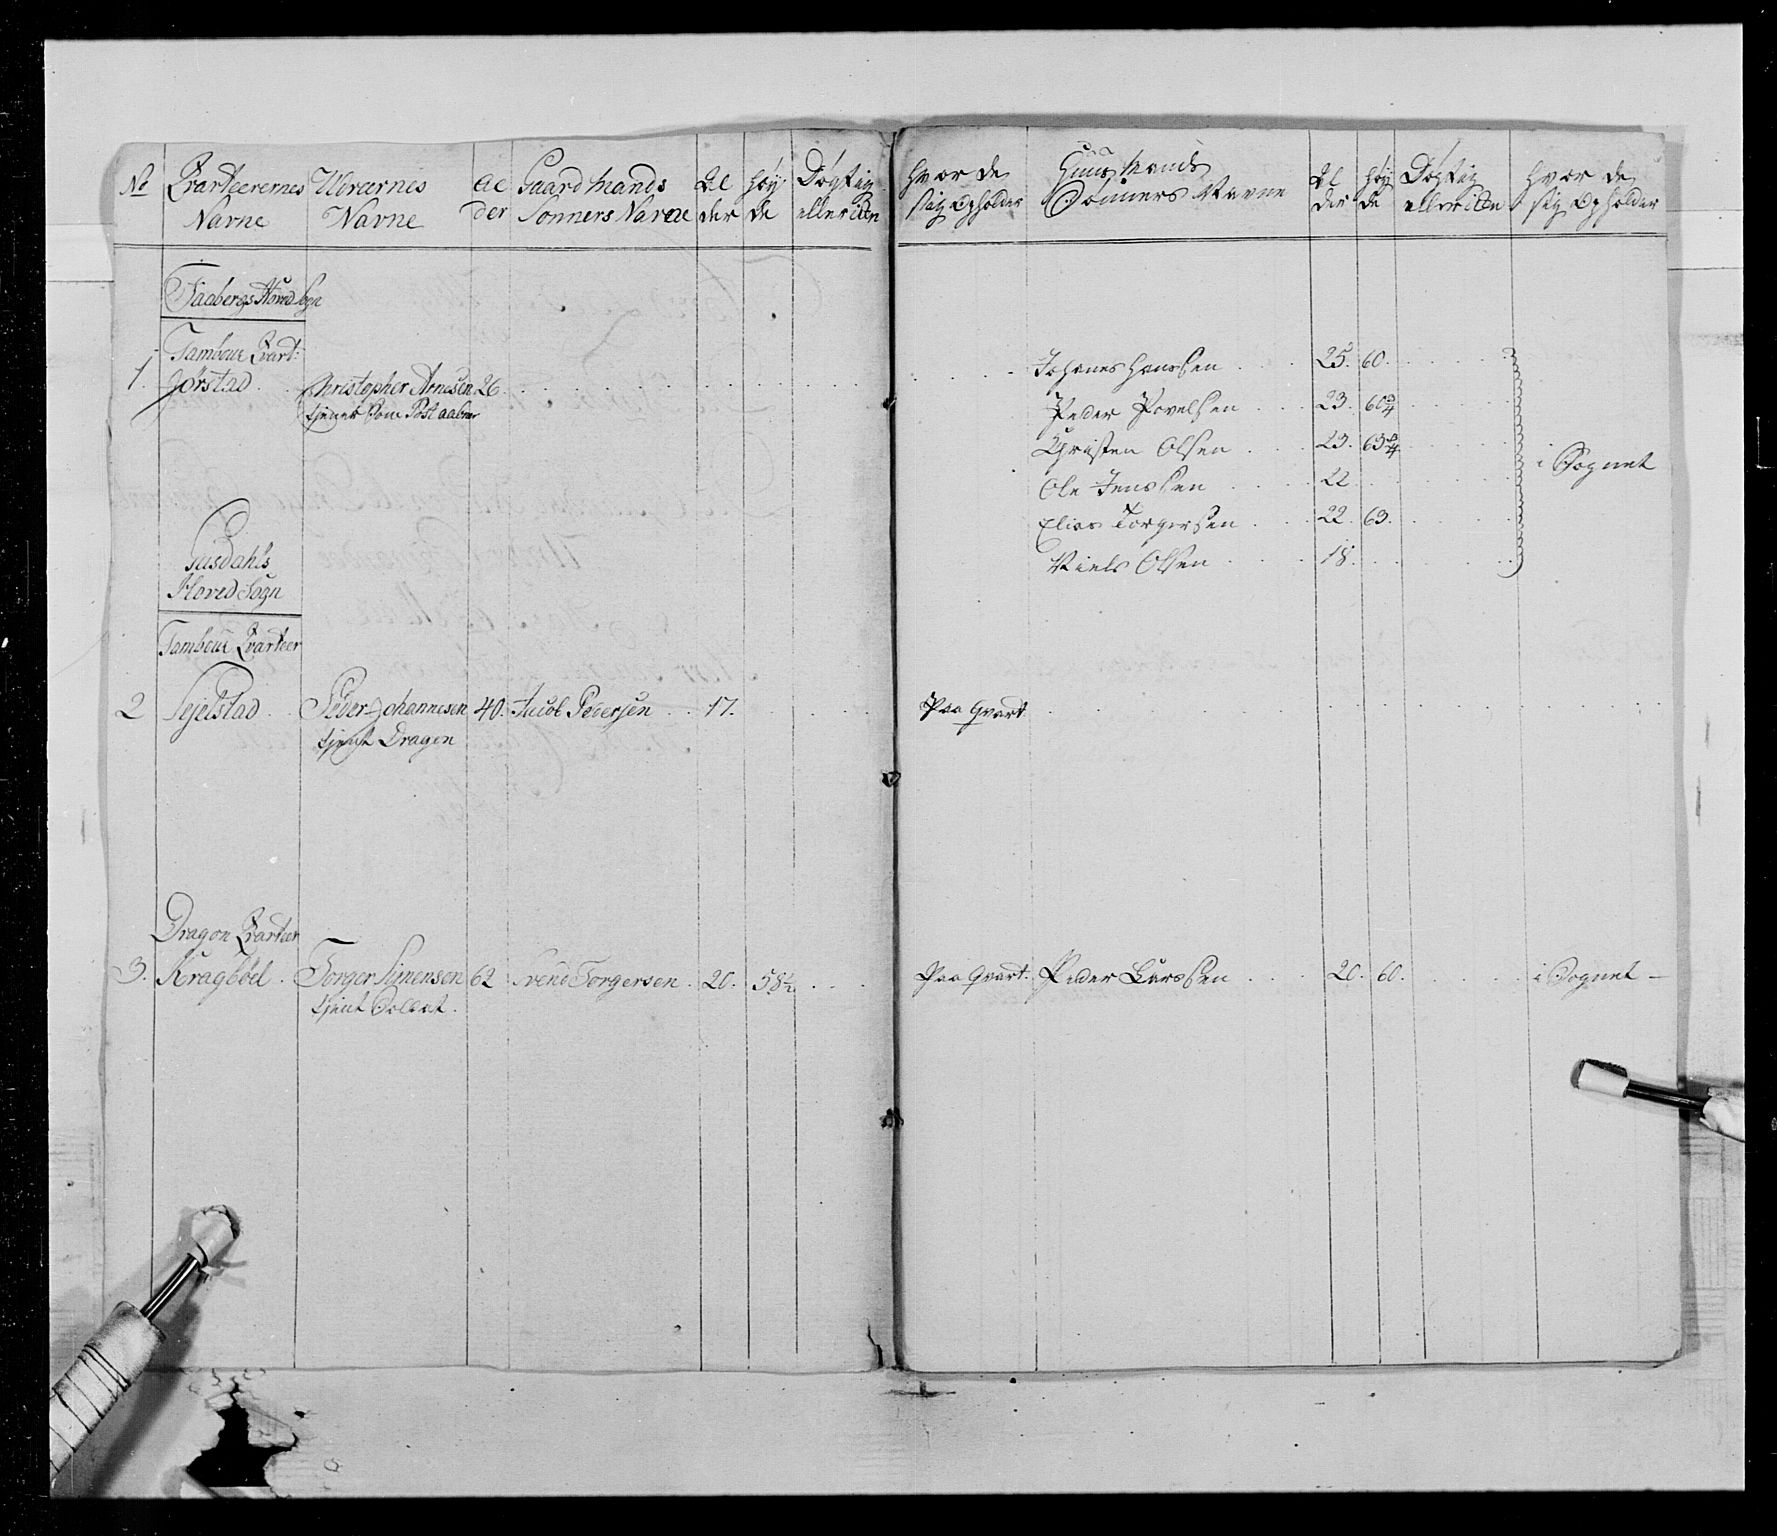 No
Qvarteerernes
Navne
Værernes
Navne
Al
der
Gaard Mands
Sønners Navne
Al
der
Høy
de
Døgtig
eller icke
Hvor de
sig Opholder
Huus Mands
Sønners Navne
Al
der
Høy
de
Døgtig
eller icke
Hvor de
sig Opholder
Faabergs Hoved Sogn
Tambour Qvart:
1. Jørstad. Christopher Arnesen 26.
tjener som Post aabner
Johanes Hanssen 25. 60.
Peder Povelsen 23. 60 3/4
Christen Olsen 23. 63 3/4
Ole Jenssen 22
Elias Torgersen 22. 63.
Niels Olsen 18.
i Sognet
Gusdahls
Hoved Sogn
Tambour Qvarteer
2 Sejelstad. Peder Johannesen 40. Jacob Pedersen 17. Paa Qvart.
tjent Dragon
Dragon Qvarteer
3. Kragbøel. Torger Simensen 62 Svend Torgersen. 20. 58 1/2 Paa Qvart. Peder Larssen 20. 60. i Sognet
tjent Soldat.